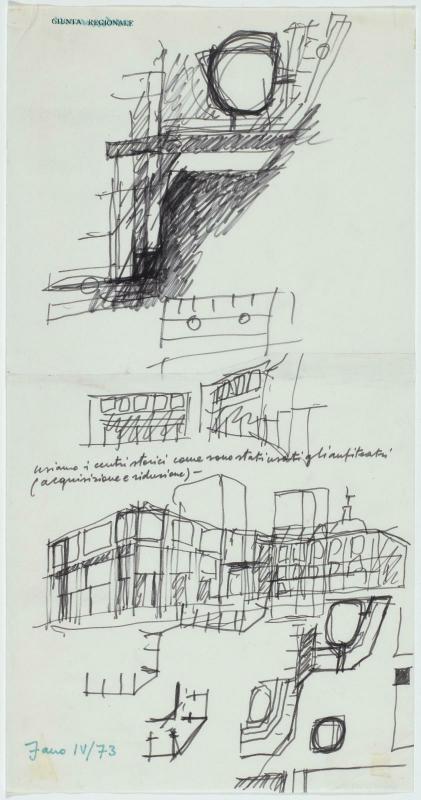 GIUNTA REGIONALE
usiamo i centri storici come sono stati usati gli anfiteatri
(acquisizione e riduzione) –
Jano IV/73